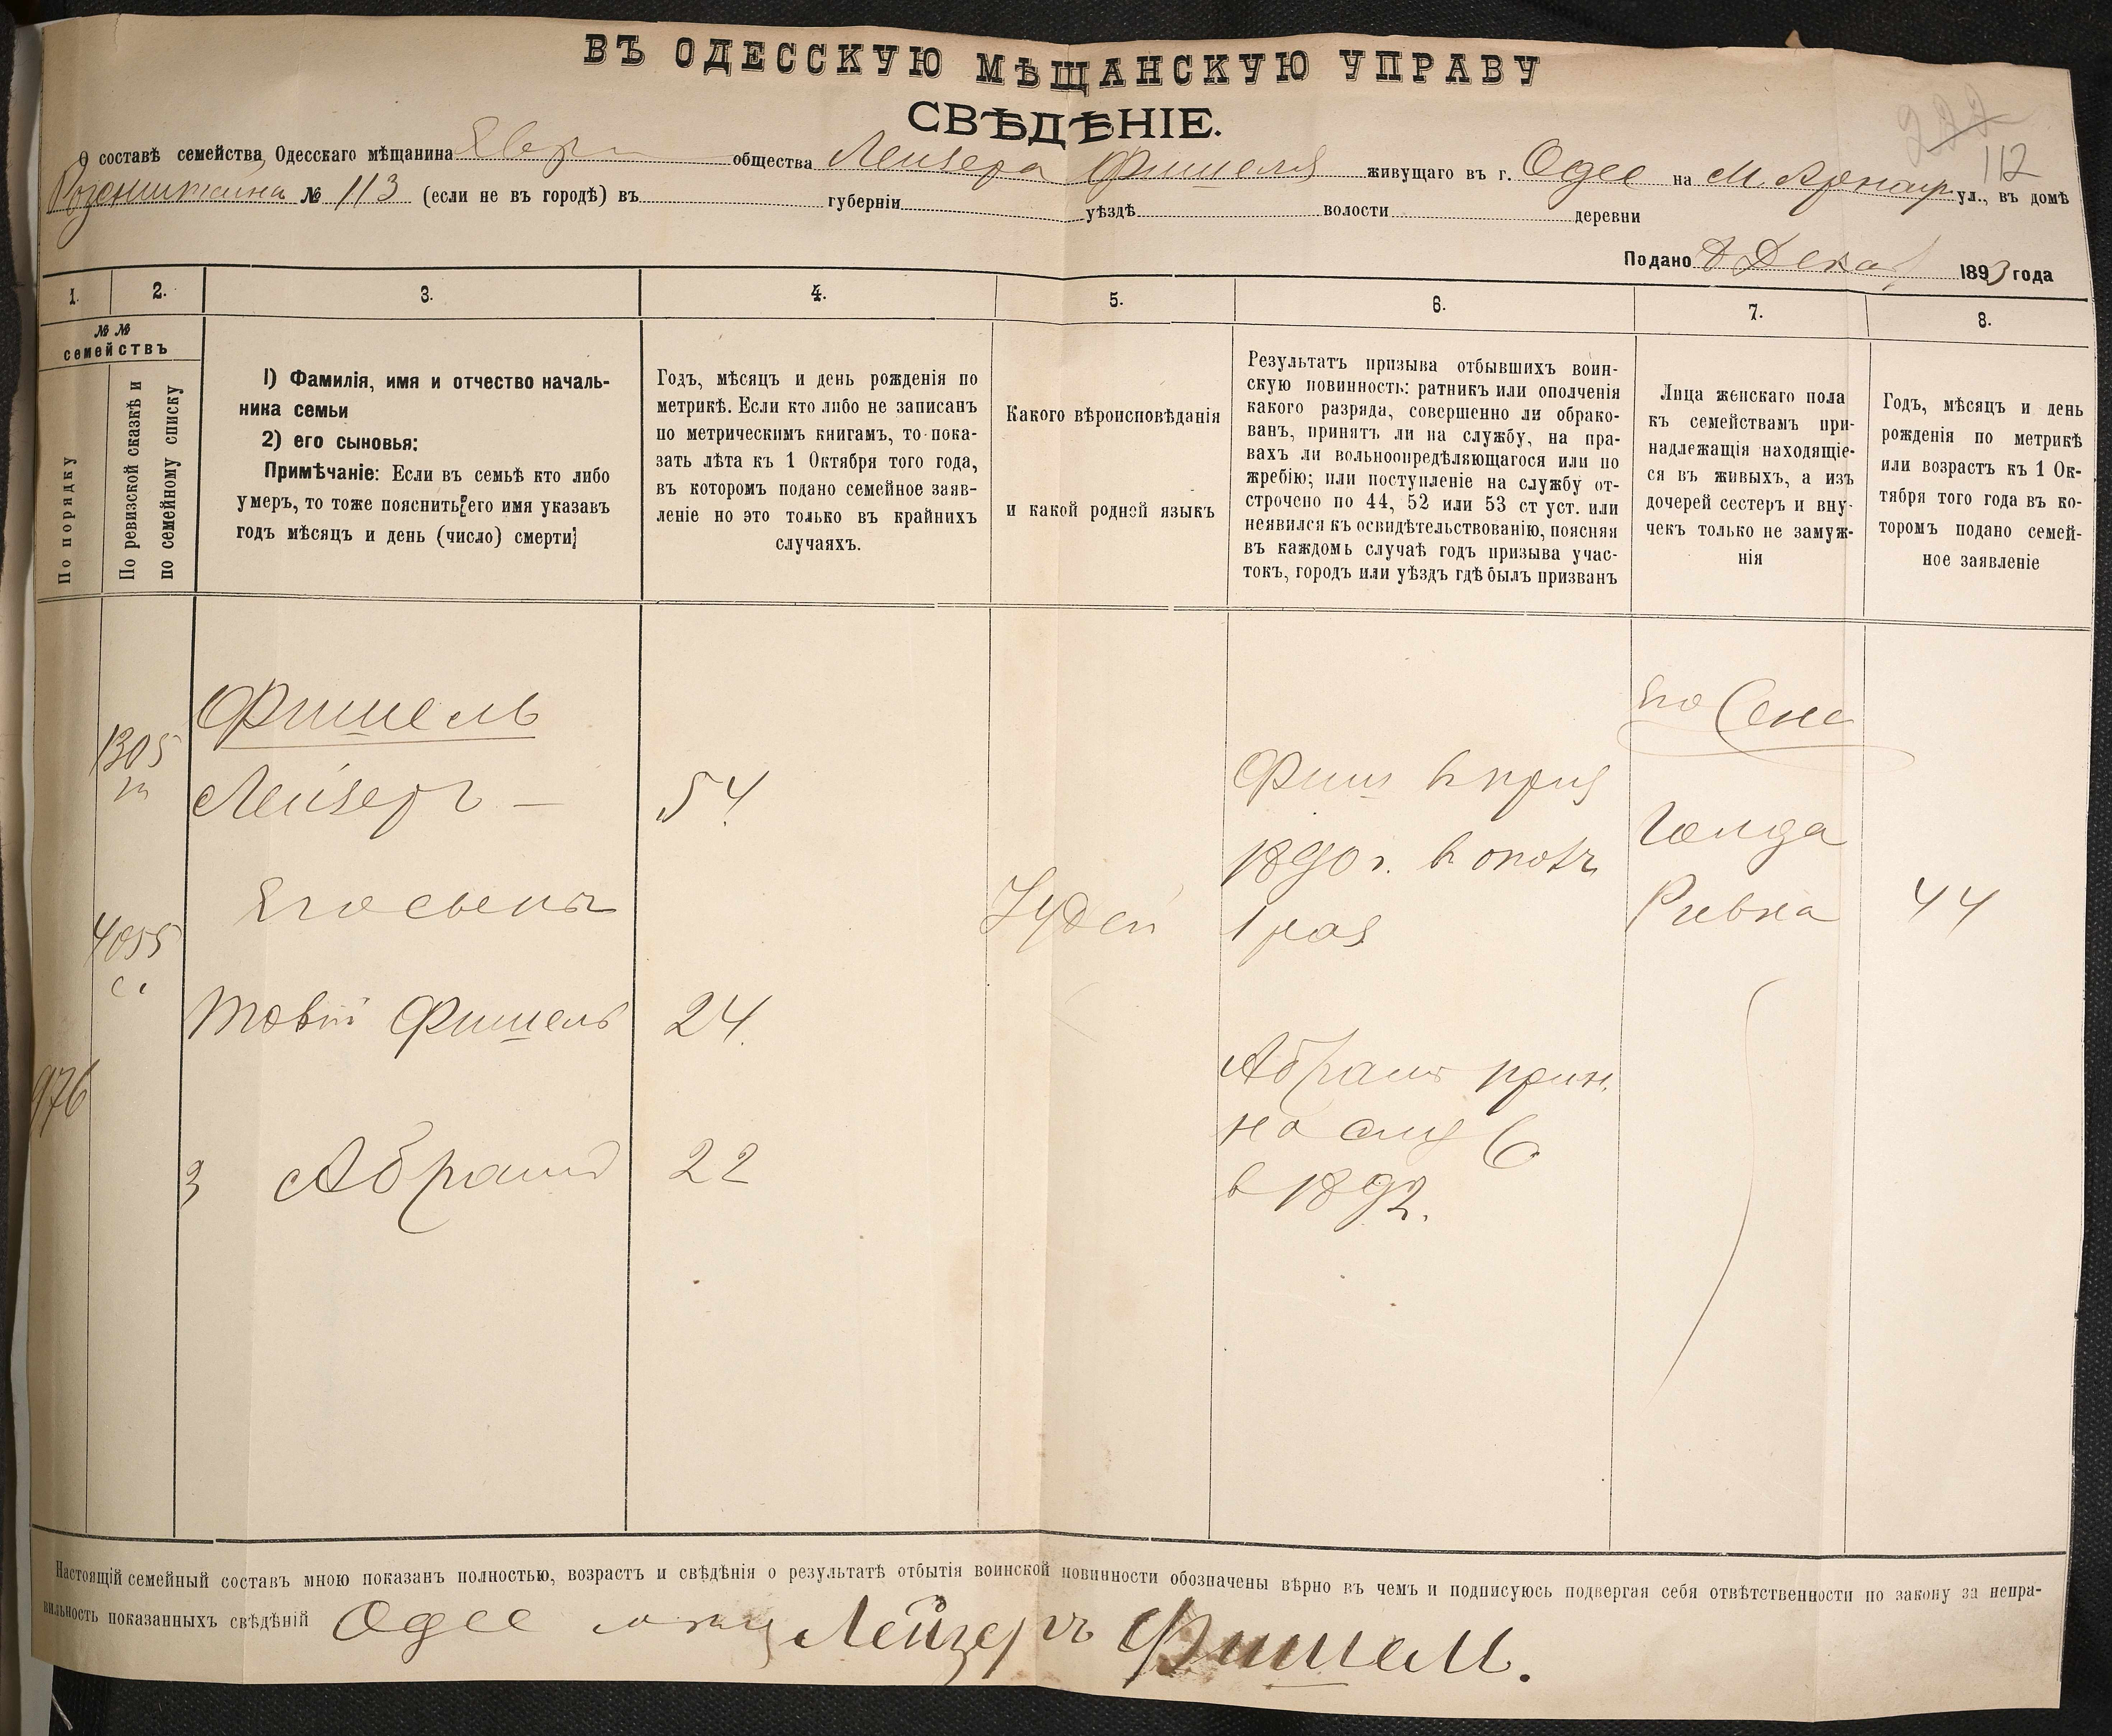 ВЪ ОДЕССКУЮ МѢЩАНСКУЮ УПРАВУ
СВѢДѢНІЕ.
112
О составѣ семейства, Одесскаго мѣщанина Евр общества Лейзера Фишеля живущаго въ г. Одес на М. Арнаут ул., въ домѣ
№ 113 (если не въ городѣ) въ губерніи уѣздѣ волости деревни
Подано 8 Декаб 1893 года
1. 2. 3. 4. 5. 6. 7. 8.
№№ семействъ
По порядку
По ревизской сказкѣ и
по семейному списку
1) Фамилія, имя и отчество началь-
ника семьи
2) его сыновья:
Примѣчаніе: Если въ семьѣ кто либо
умеръ, то тоже пояснить его имя указавъ
годъ мѣсяцъ и день (число) смерти
Годъ, мѣсяцъ и день рожденія по
метрикѣ. Если кто либо не записанъ
по метрическимъ книгамъ, то пока-
зать лѣта къ 1 Октября того года,
въ которомъ подано семейное заяв-
леніе но это только въ крайнихъ
случаяхъ.
Какого вѣроисповѣданія
и какой родной языкъ
Результатъ призыва отбывшихъ воин-
скую повинность: ратникъ или ополченія
какого разряда, совершенно ли обрако-
ванъ, принятъ ли на службу, на пра-
вахъ ли вольноопредѣляющагося или по
жребію; или поступленіе на службу от-
строчено по 44, 52 или 53 ст уст. или
неявился къ освидѣтельствованію, поясняя
въ каждомъ случаѣ годъ призыва учас-
токъ, городъ или уѣздъ гдѣ былъ призванъ
Лица женскаго пола
къ семействамъ при-
надлежащія находящіе-
ся въ живыхъ, а изъ
дочерей сестеръ и вну-
чекъ только не замуж-
нія
Годъ, мѣсяцъ и день
рожденія по метрикѣ
или возрастъ къ 1 Ок-
тября того года въ ко-
торомъ подано семей-
ное заявленіе
1305
Фишель
Лейзеръ — 54
4055
с.
Его сынъ
Товій Фишель 24
976
3 Абрамъ 22
Іудей
Фиш в приз
1890 г. в
1 раз
Абрамъ прин.
на служ
в 1892.
Его Жена
Голда
Ривка 44
Настоящій семейный составъ мною показанъ полностью, возрастъ и свѣдѣнія о результатѣ отбытія воинской повинности обозначены вѣрно въ чемъ и подписуюсь подвергая себя отвѣтственности по закону за непра-
вильность показанныхъ свѣдѣній Одес мѣщ Лейзеръ Фишель.